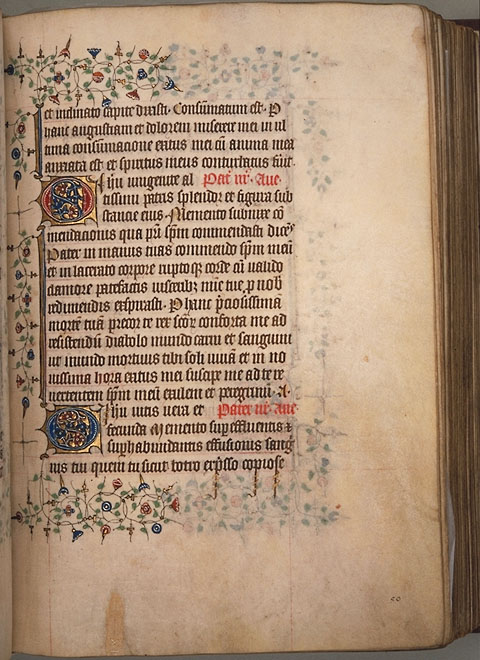 et inclinato capite dixisti. Consūmatum est. P
hanc angustiam et dolorem miserere mei in ul
tima consūmacione exitus mei cū anima mea
anxiata est et spiritus meus conturbatus fūit.
O ihū unigenite al Pat̄ nr̄. Aue
tissimi patris splendor et figura sub
stancie eius. Memento submixe cō
mendacionis qua pr̄i spm̄ commendasti dicēs
Pater in manus tuas commendo spm̄ meū
et in lacerato corpore ruptoqꝫ corde cū ualido
clamore patefactis uisceribꝫ mīe tue p nob̄
redimendis expirasti. P hanc p̄ciosissimā
mortē tuā precor te rex scōꝝ conforta me ad
resistendū diabolo mundo carni et sanguini
ut mundo mortuus tibi soli uiuā et in no
uissima hora exitus mei suscipe me ad te re
uertentem spm̄ meū exulem et peregrinū. A.
O ihū uitis uera et Pater nr̄. Aue
fecunda Memento sup effluentis ⁊
suphabundantis effusionis sanḡ
nis tui quem tu sicut botro exp̄sso copiose
50